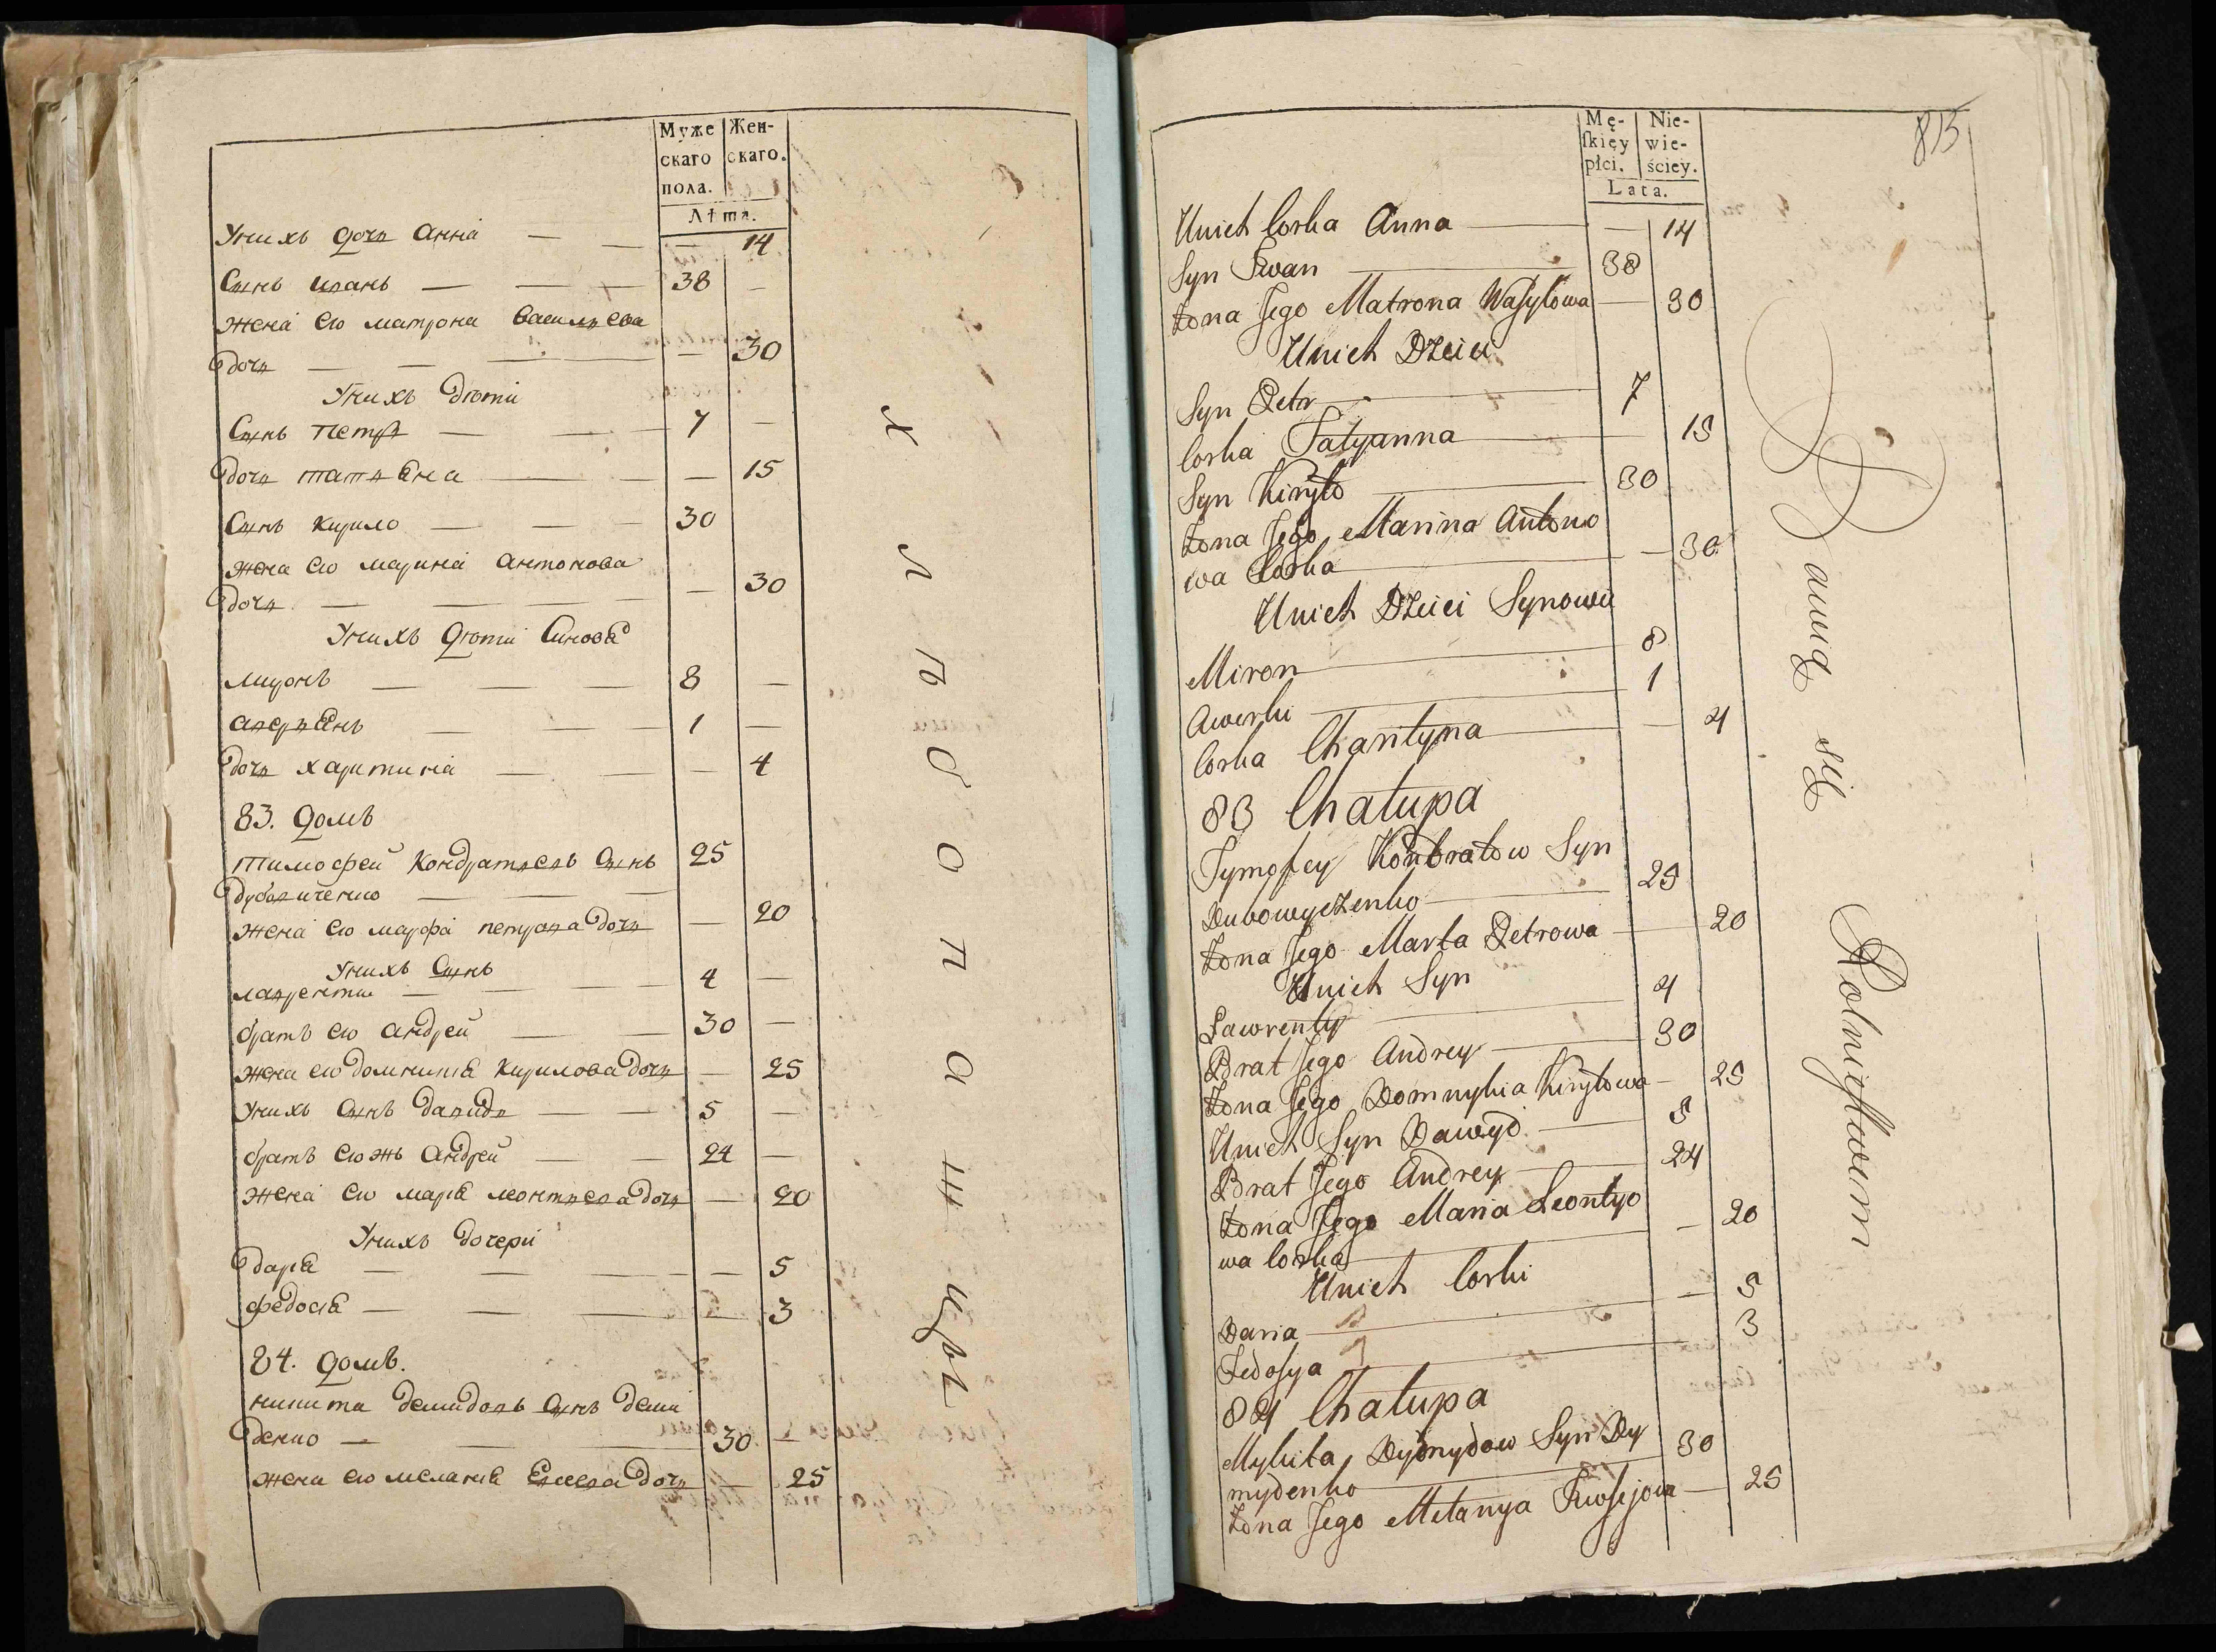 Муже
скаго
пола.
Жен-
скаго.
Лѣта.
Унихъ дочь анна — — — 14
Сынъ иванъ — — — 38 —
жена его матрона васильева
дочь — — — — 30
Унихъ дѣти
Сынъ петръ — — — 7 —
дочь татьѣна — — — 15
Сынъ кирило — — — 30
жена его марина антонова
дочь — — — — — 30
Унихъ дѣти Синовѣ
миронъ — — — 8 —
аверьѣнъ — — — 1 —
дочь харитина — — — 4
83. домъ
тимофей кондратьевъ сынъ 25
дубовиченко — —
жена его марфа петрова дочь — 20
Унихъ Сынъ
лаврентии — — — 4 —
братъ его андрей — — 30 —
жена его домникѣ кирилова дочь — 25
Унихъ сынъ давидъ — — 5 —
братъ его жъ андрей — — 24 —
жена его марѣ леонтьева дочь — 20
Унихъ дочери
дарѣ — — — — 5
федосѣ — — — — 3
84. домъ.
никита демидовъ сынъ деми
денко — — 30 —
жена его меланѣ дочь — 25
хлѣбопашцы
Mę-
ſkięy
płci.
Nie-
wie-
ściey.
Lata.
813
Unich Corka Anna — — 14
Syn Iwan — 38
Żona Jego Matrona Wasylowa — 30
Unich Dzieci
Syn Petr — 7
Corka Tatyanna — 15
Syn Kiryło — 30
Żona Jego Marina Antono
wa Corka — — 30
Unich Dzieci Synowie
Miron — 8
Awerki — 1
Corka Charityna — — 4
83 Chałupa
Tymofey Kondratow Syn
Dubowyczenko — 25
Żona Jego Marta Petrowa — 20
Unich Syn
Lawrenty — 4
Brat Jego Andrey — 30
Żona Jego Domnykia Kiryłowa — 25
Unich Syn Dawyd — 5
Brat Jego Andrey — 24
Żona Jego Maria Leontyo
wa Corka — — 20
Unich Corki
Daria — — 5
Fedosya — — 3
84 Chałupa
Mykita Dydmydow Syn Dy
mydenko — 30
Żona Jego Melanya Iwosejowa — 25
Bawią się Rolnictwem